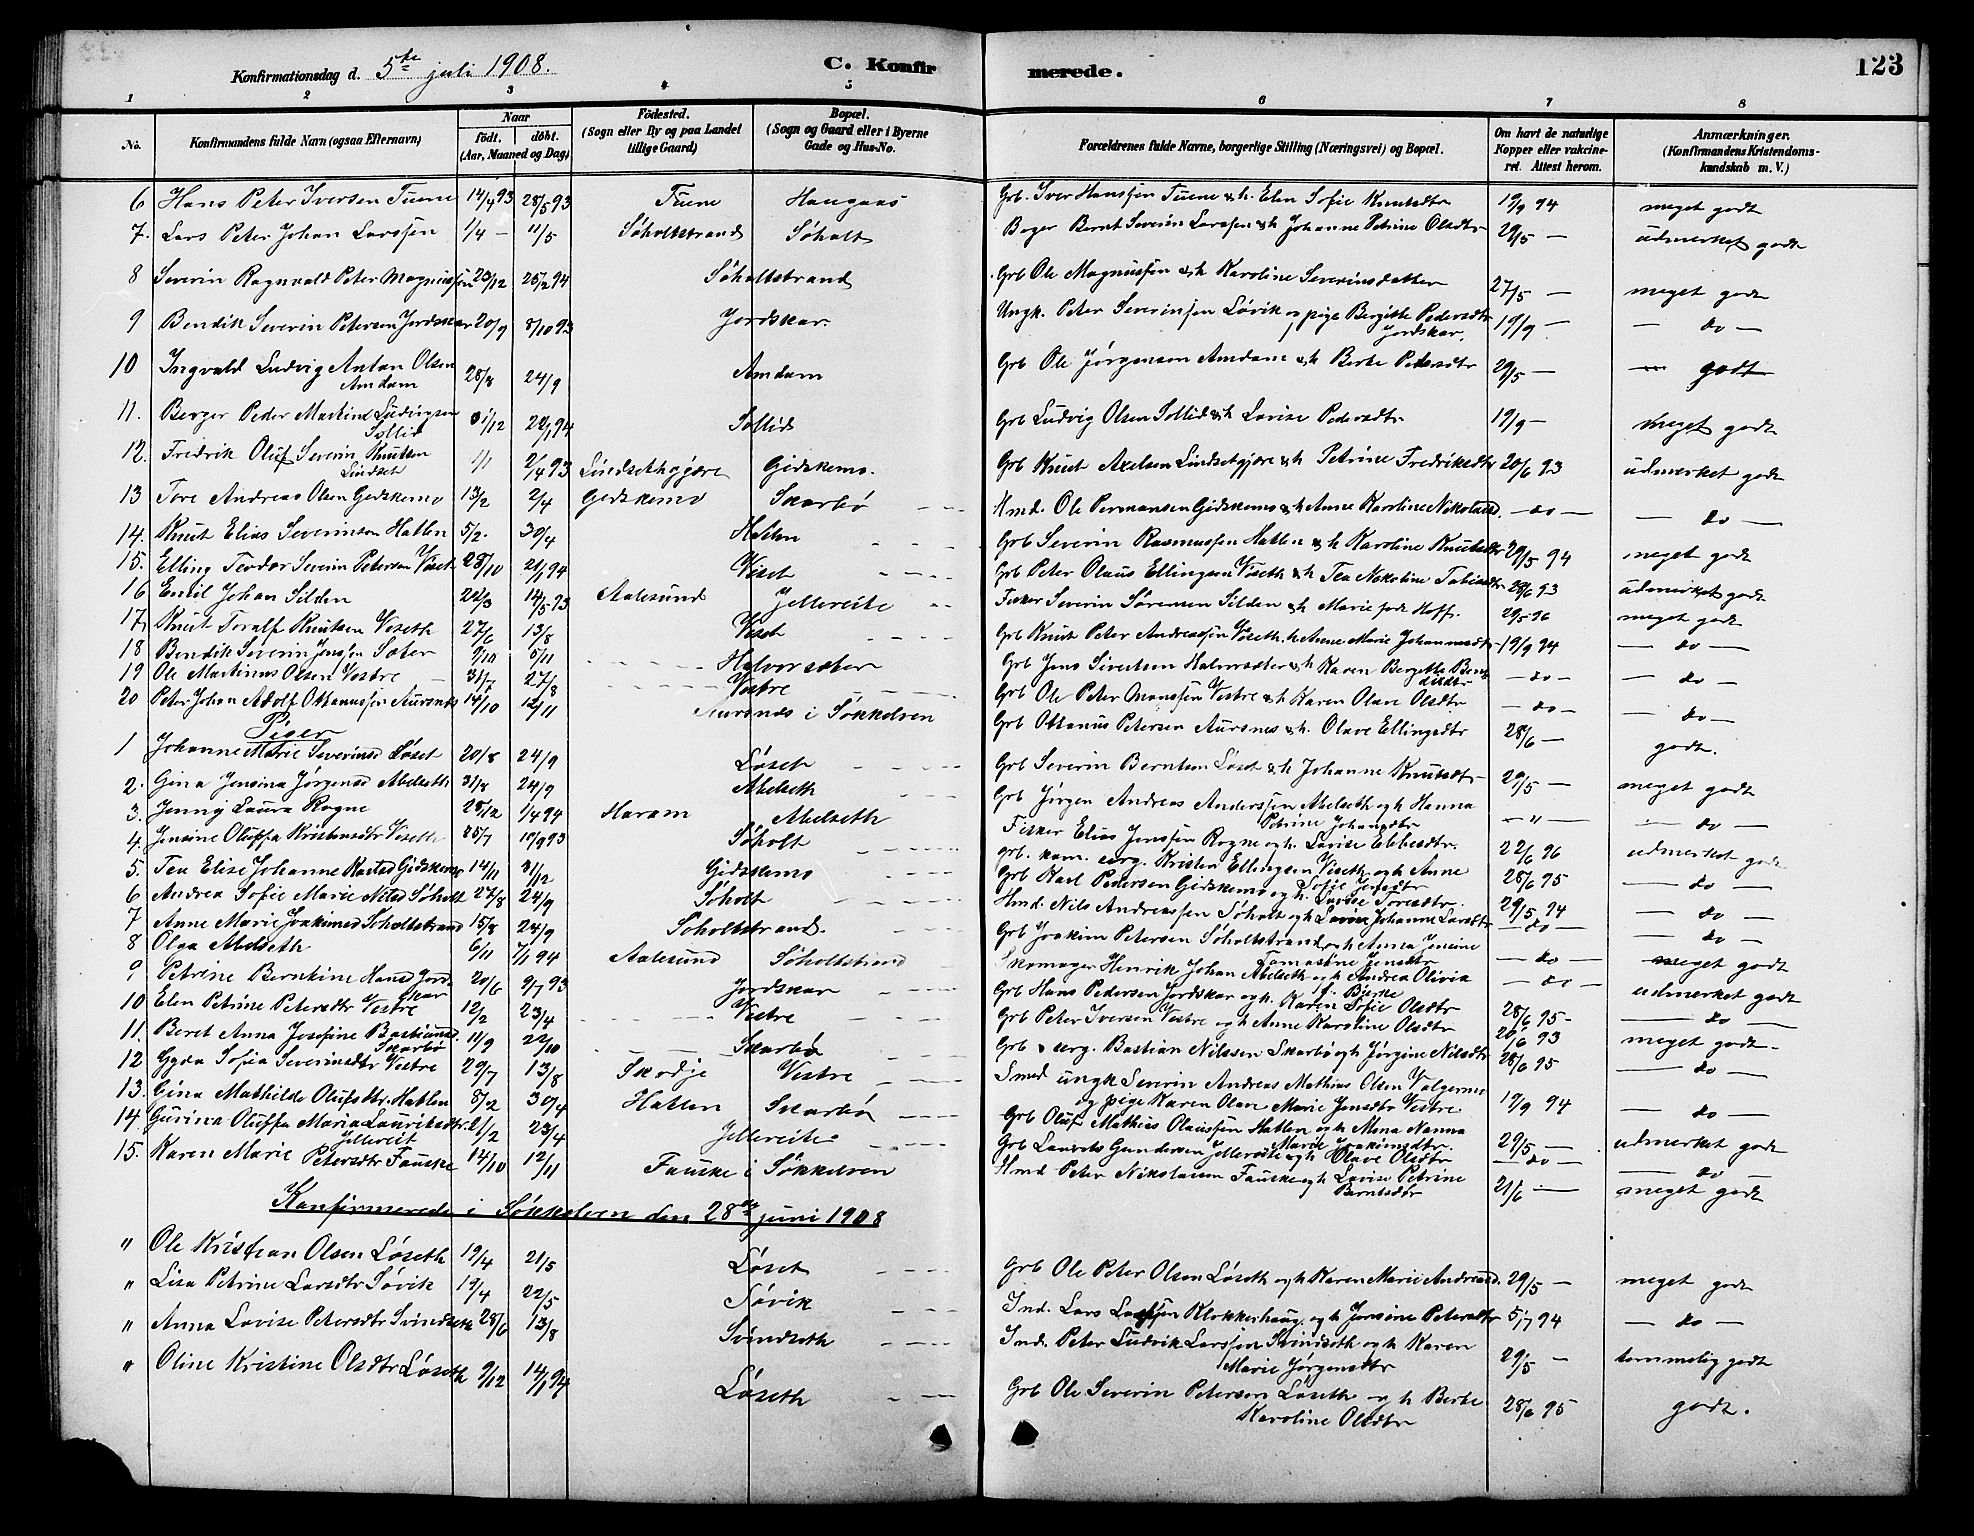 123
Konfirmationsdag d. 5te juli 1908.
C. Konfirmerede.
1 2 3 4 5 6 7 8
No.
Konfirmandens fulde Navn (ogsaa Efternavn)
Naar
födt. döbt.
(Aar, Maaned og Dag)
Födested.
(Sogn eller By og paa Landet
tillige Gaard)
Bopæl.
(Sogn og Gaard eller i Byerne
Gade og Hus-No.
Forældrenes fulde Navne, borgerlige Stilling (Næringsvei) og Bopæl.
Om havt de naturlige
Kopper eller vakcine-
ret. Attest herom.
Anmærkninger.
(Konfirmandens Kristendoms-
kundskab m. V.)
6 Hans Peter Iversen Tuene 14/4 93 28/5 93 Tuene Haugaas Grb. Iver Hanssen Tuene & h. Elen Sofie Knutsdtr 19/9 94 meget godt
7. Lars Peter Johan Larssen 1/4 – 11/5 Søholtstrand Søholt Bager Bernt Severin Larssen & h Johanne Petrine Olsdtr 29/5 – udmerket godt
8 Severin Ragnvald Peter Magnussen 23/12 25/2 94 Søholtstrand Grb Ole Magnussen & h Karoline Severinsdatter 27/5 – meget godt
9 Bendik Severin Petersen Jordskar 20/9 8/10 93 Jordskar. Ungk. Peter Severinsen Løvik og pige Bergitte Pedersdtr 19/9 – – do –
Jordskar.
10 Ingvald Ludvig Anton Olsen 28/8 24/9 Amdam Grb Ole Jørgensen Amdam & h Berte Pedersdtr 29/5 – godt
Amdam
11. Berger Peder Martinus Ludvigsen /12 22/1 94 Sollid Grb Ludvig Olsen Sollid & h Lovise Pedersdtr 19/9 – meget godt
Sollid
12. Fredrik Oluf Severin Knutsen 1/1 2/4 93 Lindsethgjære Gidskemo. Grb Knut Axelsen Lindsetgjære & h Petrine Fredriksdtr 20/6 93 udmerket godt
Lindset
13 Tore Andreas Olsen Gidskemo 13/2 2/4 Gidskemo Skarbø Hmd. Ole Permansen Gidskemo & h Anne Karoline Nikolaisd. – do – – do –
14. Knut Elias Severinsen Hatlen 5/2. 30/4 Hatlen Grb Severin Rasmussen Hatlen & h Karoline Knutsdtr 29/5 94 meget godt
15. Elling Teodor Severin Petersen Viset 28/10 21/1 94 Viset Grb Peter Olaus Ellingsen Viseth & h Tea Nekoline Tobiasdtr 28/6 93 udmerket godt
16 Emil Johan Silden 22/3 14/5 93 Aalesund Jellereite Fisker Severin Sørensen Silden & h Marie født Hoff. 29/5 96 meget godt
17. Knut Toralf Knutsen Viseth 27/6 13/8 Viset Grb Knut Peter Andreassen Viseth & h Anne Marie Johannesdtr 19/9 94 – do –
18 Bendik Severin Jenssen Sæter 9/10 5/11 Halvorsæter Grb Jens Sivertsen Halvorsæter & h Karen Bergitte Ben- – do – – do –
diksdtr
19 Ole Martinus Olsen Vestre 31/7 27/8 Vestre Grb Ole Peter Monssen Vestre & h Karen Olave Olsdtr – do – – do –
20 Peter Johan Adolf Ottanussen Aursnes 14/10 12/11 Aursnes i Søkkelven Grb Ottanus Petersen Aursnes & h. Olave Ellingsdtr 28/6 – godt.
Piger
1 Johanne Marie Severinsd Løset 20/8 24/9 Løset Grb Severin Berntsen Løset & h Johanne Knutsdtr 29/5 – meget godt
2. Gina Jensina Jørgensd Abelseth 31/8 24/9 Abelseth Grb Jørgen Andreas Anderssen Abelseth og h Hanna – " – – do –
Petrine Johansdtr
3. Jenny Laura Rogne 28/12 1/4 94 Haram Abelseth Fisker Elias Jenssen Rogne og h. Lovise Ebbesdtr. 22/6 96 udmerket godt
4. Jensine Oluffa Kristensdtr Viseth 25/7 10/9 93 Søholt grb. kom. serg. Kristen Ellingsen Viseth og h Anne 28/6 95 – do –
Sofie Jensdtr
5. Tea Elise Johanne Karlsd Gidskemo 14/11 31/12 Gidskemo Grb Karl Pedersen Gidskemo og h. Lovise Toresdtr. 29/5 94 – do –
6 Andrea Sofie Marie Nilsd Søholt 27/8 24/9 Søholt Hmd. Nils Andreassen Søholt og h Lovise Johanne Larsdtr – do – – do –
7 Anne Marie Joakimsd Søholtstrand 15/8 24/9 Søholtstrand. Grb Joakim Petersen Søholtstrand og h Anna Jensine – do – meget godt
Tomasine Jensdtr
8 Olga Abelseth 6/11 7/1 94 Aalesund Søholtstrand Skomager Henrik Johan Abelseth og h Andrea Olivia – do – udmerket godt
f. Bjerke
9 Petrine Berntine Hansd Jord- 20/6 9/7 93 Jordskar Grb Hans Pedersen Jordskar og h. Karen Sofie Olsdtr 28/6 95 – – do –
skar
10 Elen Petrine Petersdtr Vestre 12/2 23/4 Vestre Grb Peter Iversen Vestre og h Anne Karoline Olsdtr 20/6 93 meget godt
11. Beret Anna Josefine Bastiansd. 11/9 22/10 Skarbø Grb & serg. Bastian Nilssen Skarbø og h Jørgine Nilsdtr 28/6 95 – do –
Skarbø
12 Gyda Sofia Severinsdtr Vestre 29/7 13/8 Skodje Vestre Smed ungk Severin Andreas Mathias Olsen Valgermo 19/9 94 – do –
og pige Karen Olave Marie Jensdtr Vestre
13. Gina Mathilde Olufsdtr. Hatlen 8/2 30/4 Hatlen Skarbø Grb Oluf Mathias Olaussen Hatlen og h Mona Nanna 29/5 – udmerket godt
Marie Joakimsdtr.
14. Gurina Oluffa Maria Lauritsdtr. 21/2 23/4 Jellereite Grb Laurits Gundersen Jellereite & h Olave Olsdtr – do – – do –
Jellereit
15. Karen Marie Petersdtr Fauske 14/10 12/11 Fauske i Søkkelven Hmd Peter Nikolaisen Fauske og h Lovise Petrine 21/6 – meget godt
Berntsdtr
Konfirmerede i Søkkelven den 28de juni 1908
" Ole Kristian Olsen Løseth 19/4 21/5 Løset Grb Ole Peter Olsen Løseth og h Karen Marie Andreasd. 29/5 – meget godt
" Lisa Petrine Larsdtr Søvik 19/4 22/5 Søvik Ind. Lars Larssen Klokkerhaug og h Jensine Petersdtr 5/7 94 – do –
" Anna Lovise Petersdtr Svindseth 28/6 13/8 Svindseth Ind. Peter Ludvik Larssen Svindseth og h Karen 29/5 – temmelig godt
Marie Jørgensdtr
" Oline Kristine Olsdtr Løseth 9/12 14/1 94 Løseth Grb Ole Severin Petersen Løseth og h Berte 28/6 95 godt.
Karoline Olsdtr